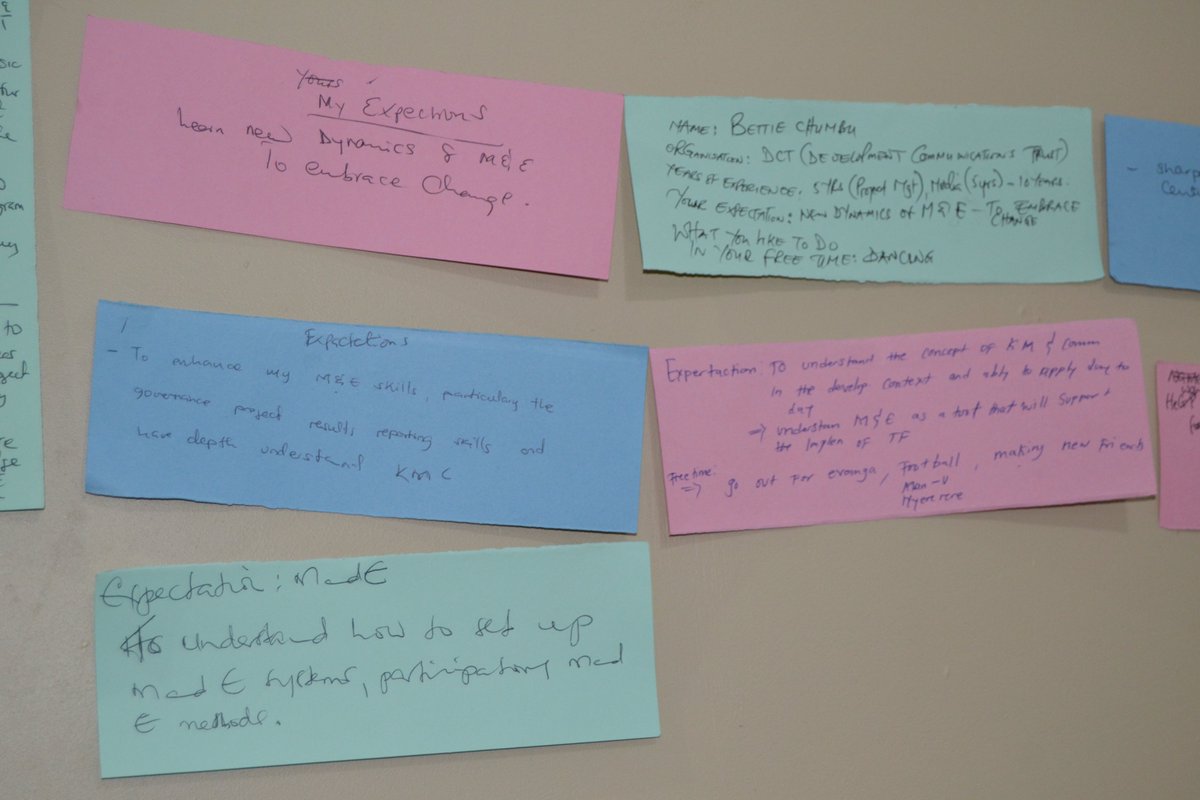 Yours
My Expections
Learn new Dynamics of M&E
To embrace Change.
NAME: BETTIE CHUMBU
ORGANISATION: DCT (DEVELOPMENT COMMUNICATIONS TRUST)
YEARS OF EXPERIENCE: 5 YRS (Project Mgt), Media (5yrs) – 10 YEARS.
YOUR EXPECTATION: NEW DYNAMICS OF M & E – TO EMBRACE
CHANGE
WHAT YOU LIKE TO DO
IN YOUR FREE TIME: DANCING
- sharp
Expectations
- To enhance my M&E skills, particulary the
governance project results reporting skills and
have depth understand KMC
Expertaction: TO understand the concept of KM & Comm
in the develop context and ably to apply day to
day
⇒ understan M & E as a tool that will support
the Implen of TF
Free time:
⇒ go out For evanga, Football, making new Friends
Man-U
Nyererere
Expectation: M and E
To understand how to set up
M and E systems, participatory M and
E methods.